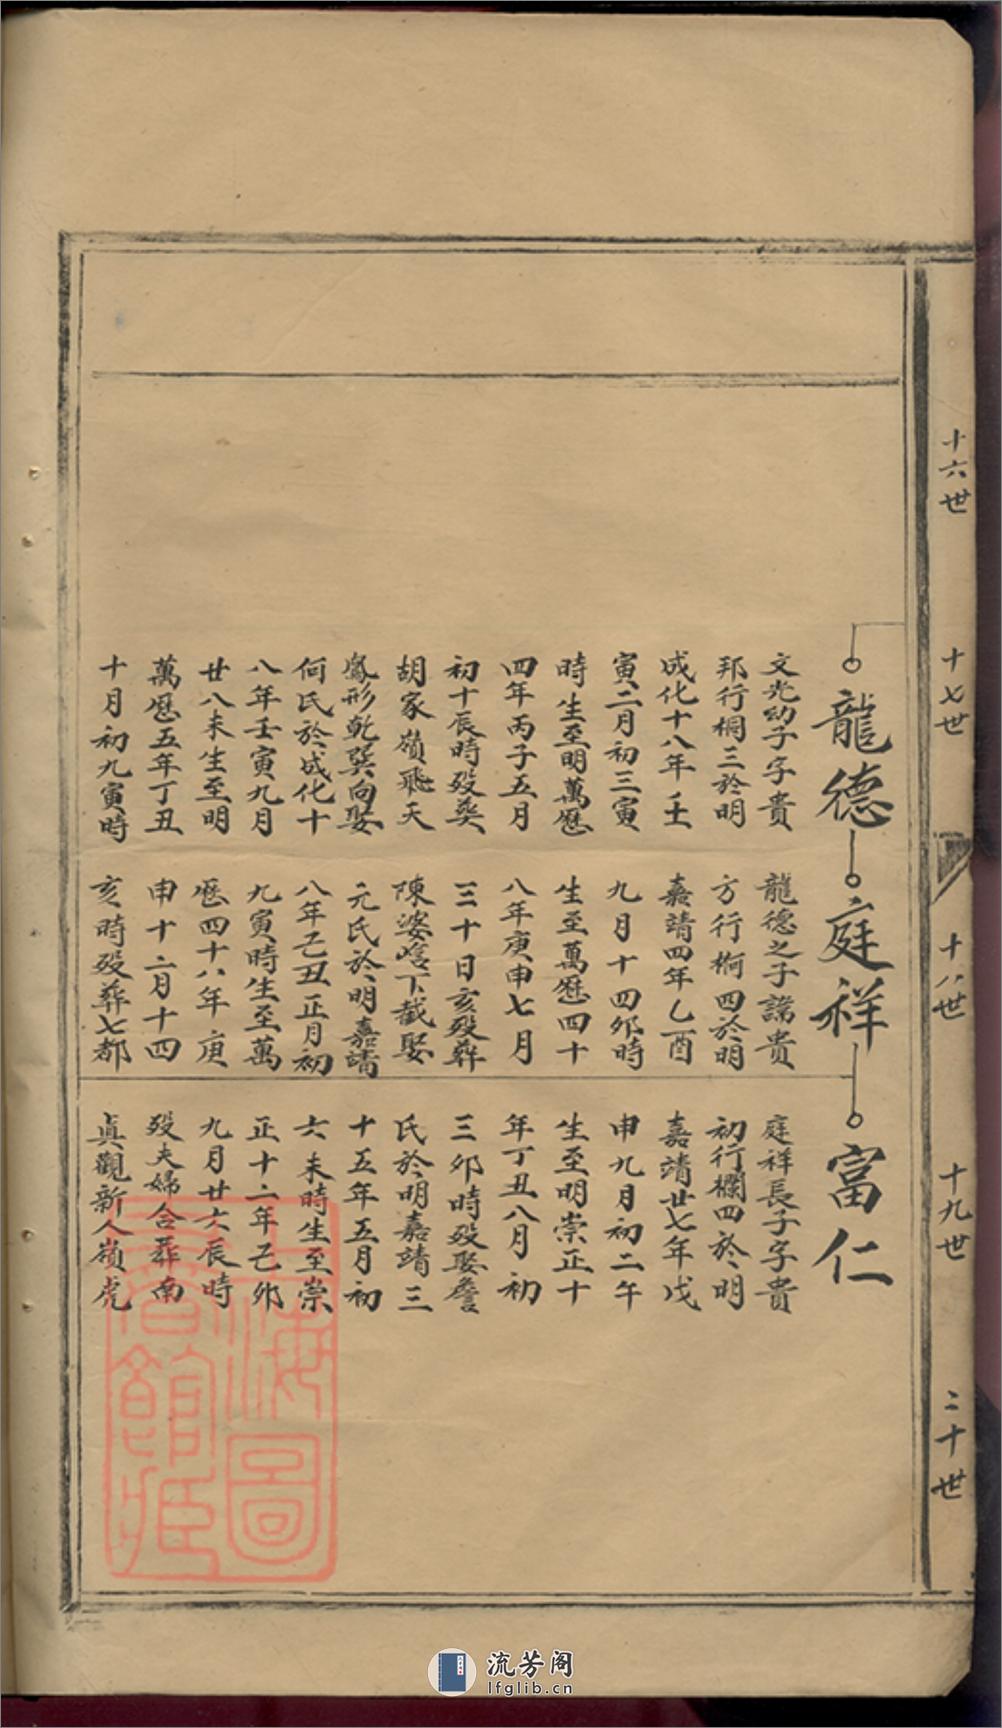 十六世
十七世
十八世
十九世
二十世
龍德
文光幼子字貴
邦行桐三於明
成化十八年壬
寅二月初三寅
時生至明萬歷
四年丙子五月
初十辰時歿葬
胡家嶺飛天
鳳形乾巽向娶
何氏於成化十
八年壬寅九月
廿八未生至明
萬歷五年丁丑
十月初九寅時
庭祥
龍德之子諱貴
方行桐四於明
嘉靖四年乙酉
九月十四卯時
生至萬歷四十
八年庚申七月
三十日亥歿葬
陳婆下截娶
元氏於明嘉靖
八年己丑正月初
九寅時生至萬
歷四十八年庚
申十二月十四
亥時歿葬七都
富仁
庭祥長子字貴
初行欄四於明
嘉靖廿七年戊
申九月初二午
生至明崇正十
年丁丑八月初
三卯時歿娶詹
氏於明嘉靖三
十五年五月初
六未時生至崇
正十二年己卯
九月廿六辰時
歿夫婦合葬南
真觀新人嶺虎
上海圖書館藏
流芳阁
lfglib.cn